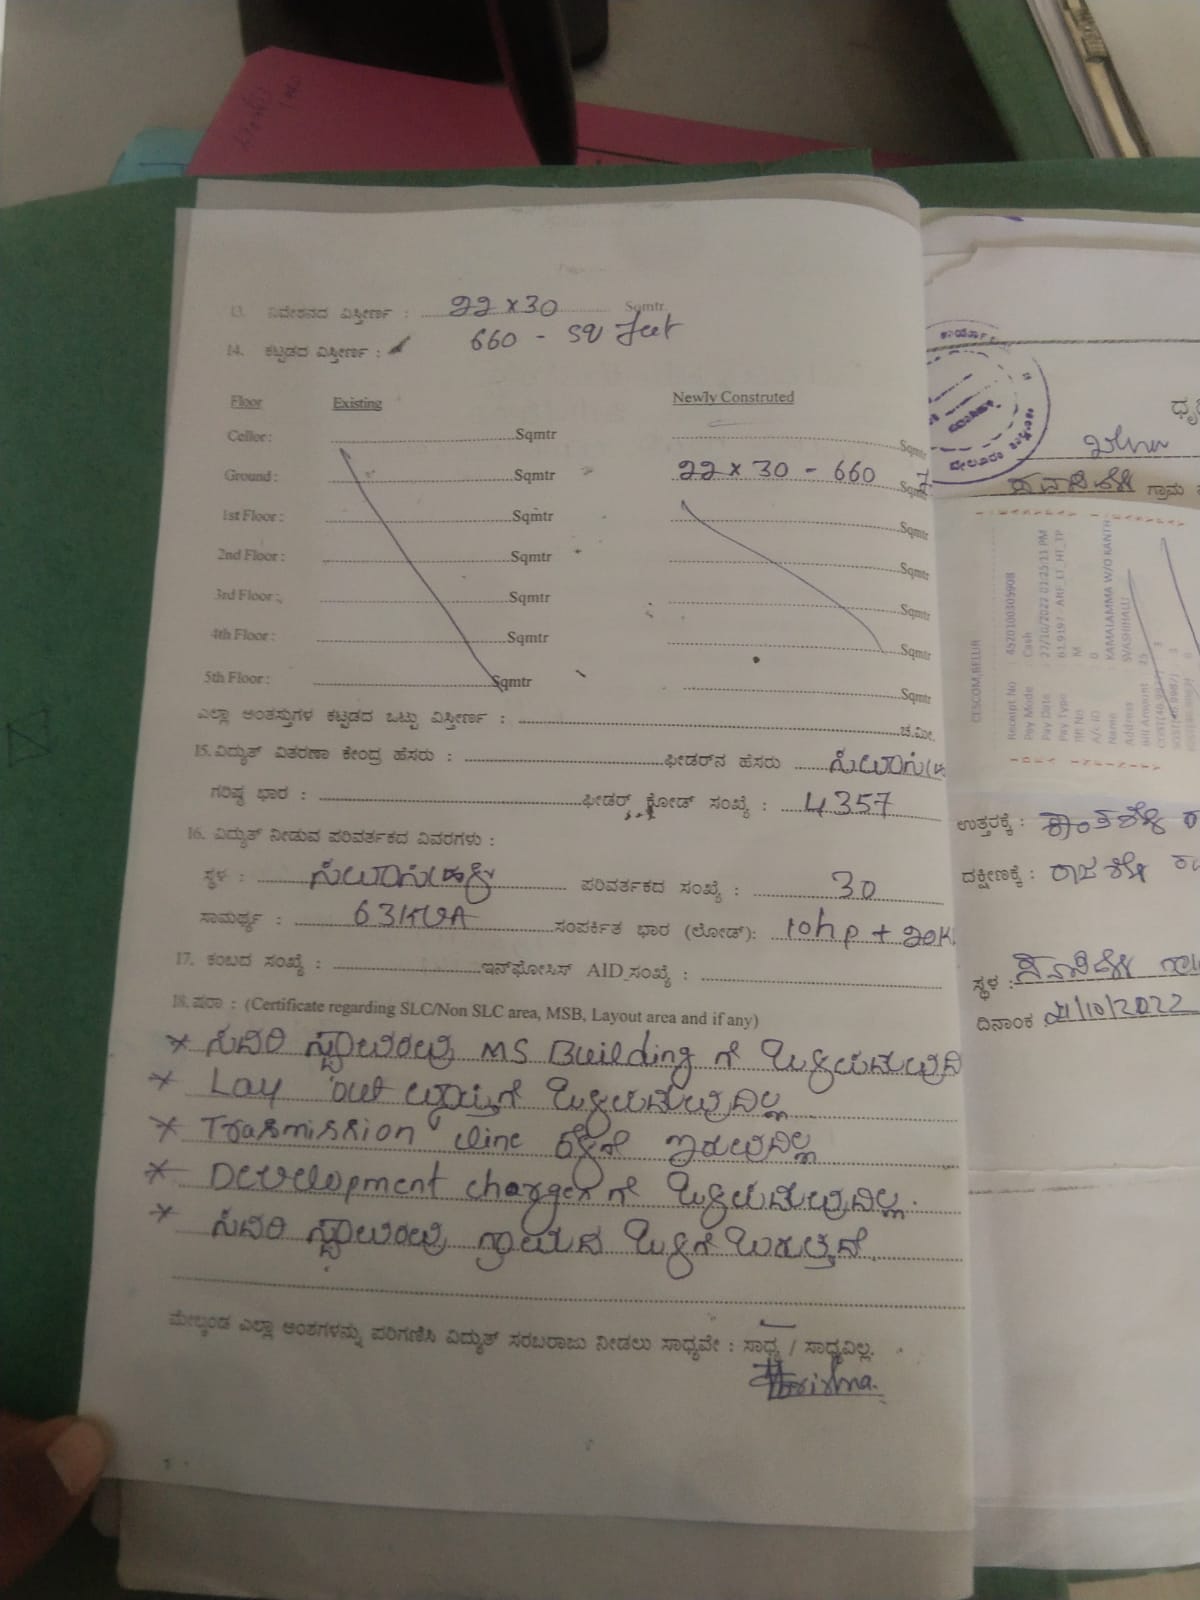 13. ನಿವೇಶನದ ವಿಸ್ತೀರ್ಣ : 22 x 30 Sqmtr
660 - sq feet
14. ಕಟ್ಟಡದ ವಿಸ್ತೀರ್ಣ :
Floor Existing Newly Construted
Cellor : Sqmtr Sqmtr
Ground : Sqmtr 22 x 30 - 660 Sqmtr
1st Floor : Sqmtr Sqmtr
2nd Floor : Sqmtr Sqmtr
3rd Floor : Sqmtr Sqmtr
4th Floor : Sqmtr Sqmtr
5th Floor : Sqmtr Sqmtr
ಎಲ್ಲಾ ಅಂತಸ್ತುಗಳ ಕಟ್ಟಡದ ಒಟ್ಟು ವಿಸ್ತೀರ್ಣ : ಚ.ಮೀ.
15. ವಿದ್ಯುತ್ ವಿತರಣಾ ಕೇಂದ್ರ ಹೆಸರು : ಫೀಡರ್‌ನ ಹೆಸರು
ಗರಿಷ್ಠ ಭಾರ : ಫೀಡರ್ ಕೋಡ್ ಸಂಖ್ಯೆ : 4357
16. ವಿದ್ಯುತ್ ನೀಡುವ ಪರಿವರ್ತಕದ ವಿವರಗಳು :
ಸ್ಥಳ : ಪರಿವರ್ತಕದ ಸಂಖ್ಯೆ : 30
ಸಾಮರ್ಥ್ಯ : 63KVA ಸಂಪರ್ಕಿತ ಭಾರ (ಲೋಡ್): 10hp + 20K
17. ಕಂಬದ ಸಂಖ್ಯೆ : ಇನ್‌ಫೋಸಿಸ್ AID ಸಂಖ್ಯೆ :
18. ಷರಾ : (Certificate regarding SLC/Non SLC area, MSB, Layout area and if any)
* ಸದರಿ ಸ್ಥಾವರವು MS Building ಗೆ ಒಳಪಡುವುದಿ
* Lay out ವ್ಯಾಪ್ತಿಗೆ ಒಳಪಡುವುದಿಲ್ಲ
* Trasmission line ಕೆಳಗೆ ಇರುವುದಿಲ್ಲ
* Development charges ಗೆ ಒಳಪಡುವುದಿಲ್ಲ.
* ಸದರಿ ಸ್ಥಾವರವು ಗ್ರಾಮದ ಒಳಗೆ ಬರುತ್ತದೆ.
ಮೇಲ್ಕಂಡ ಎಲ್ಲಾ ಅಂಶಗಳನ್ನು ಪರಿಗಣಿಸಿ ವಿದ್ಯುತ್ ಸರಬರಾಜು ನೀಡಲು ಸಾಧ್ಯವೇ : ಸಾಧ್ಯ / ಸಾಧ್ಯವಿಲ್ಲ.
ಗ್ರಾಮ
CESCOM,BELUR
Receipt No : 4520100305908
Pay Mode : Cash
Pay Date : 27/10/2022 01:25:11 PM
Pay Type
RR No : M
A/c ID : 0
Name : KAMALAMMA W/O KANTH
Address
Bill Amount : 25
ಉತ್ತರಕ್ಕೆ :
ದಕ್ಷೀಣಕ್ಕೆ :
ಸ್ಥಳ :
ದಿನಾಂಕ : 21/10/2022